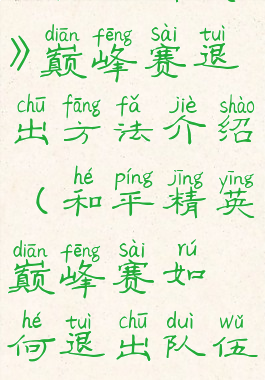 diān fēng sài tuì
》巅峰赛退
chū fāng fǎ jiè shào
出方法介绍
hé píng jīng yīng
（和平精英
diān fēng sài rú
巅峰赛如
hé tuì chū duì wǔ
何退出队伍